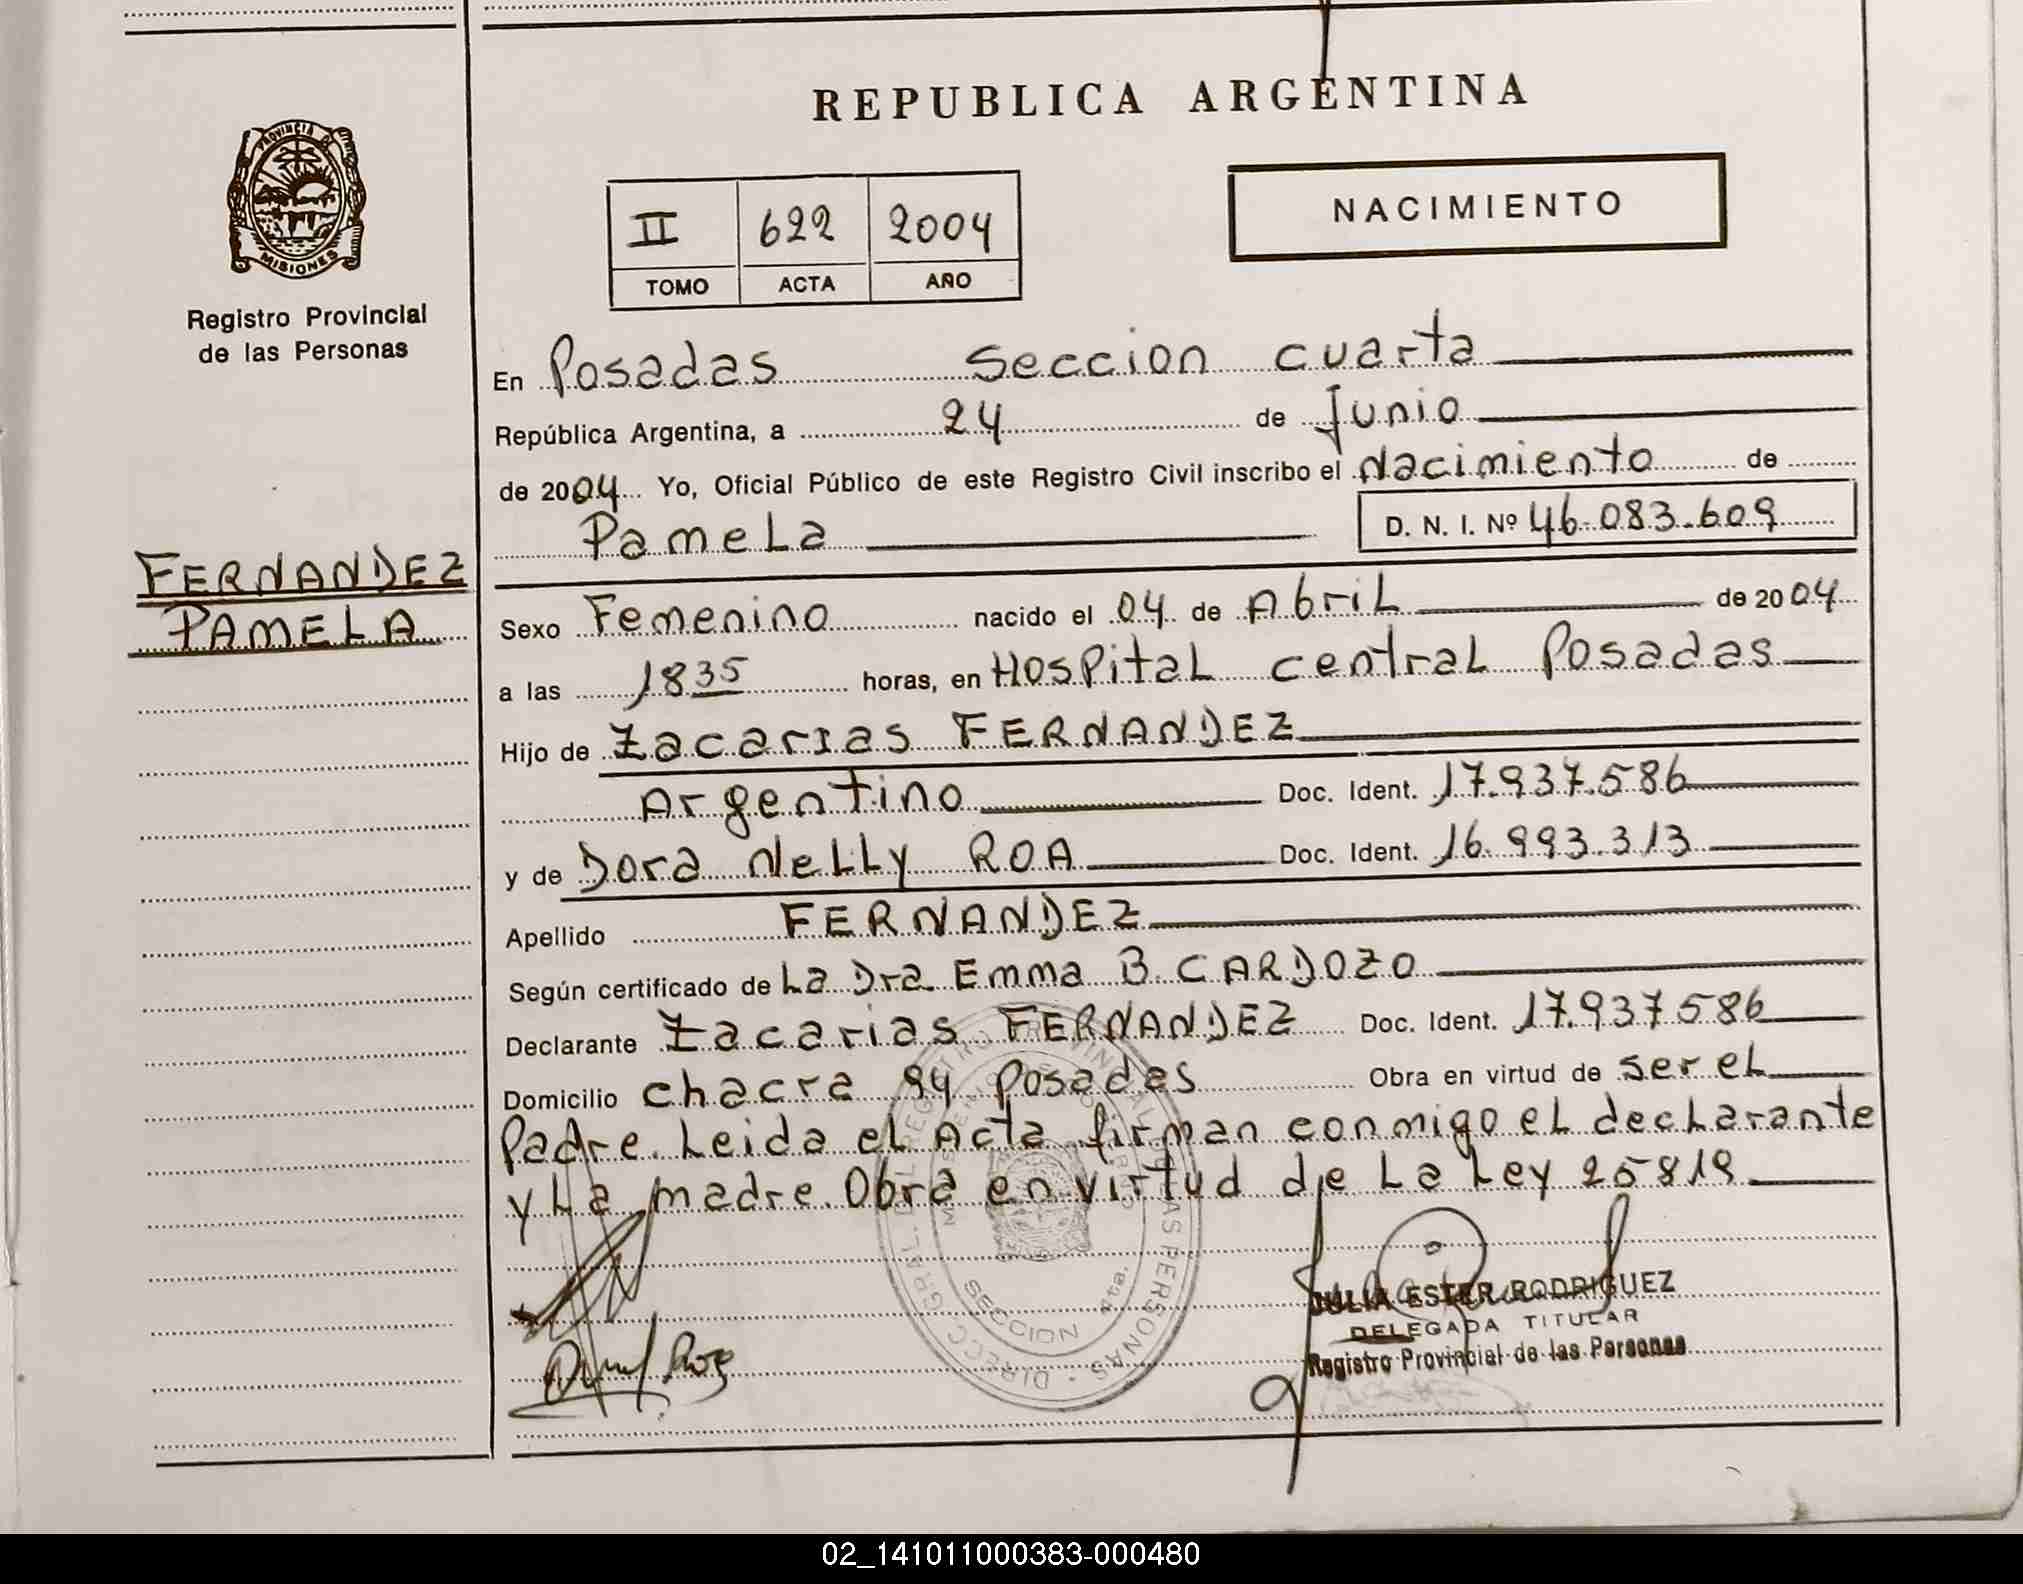 REPUBLICA ARGENTINA
PROVINCIA DE
MISIONES
Registro Provincial
de las Personas
II 622 2004
TOMO ACTA AÑO
NACIMIENTO
FERNANDEZ
PAMELA
En Posadas seccion cuarta
República Argentina, a 24 de Junio
de 2004 Yo, Oficial Público de este Registro Civil inscribo el Nacimiento de
Pamela D. N. I. Nº 46.083.609
Sexo Femenino nacido el 04 de Abril de 2004
a las 1835 horas, en Hospital central Posadas
Hijo de Zacarias FERNANDEZ
Argentino Doc. Ident. 17.937.586
y de Dora Nelly ROA Doc. Ident. 16.993.313
Apellido FERNANDEZ
Según certificado de La Dra Emma B. CARDOZO
Declarante Zacarias FERNANDEZ Doc. Ident. 17.937 586
Domicilio chacra 94 Posadas Obra en virtud de ser el
Padre. Leida el Acta firman conmigo el declarante
y La madre. Obra en virtud de La Ley 25819
SECCION 4ta.
JULIA ESTER RODRIGUEZ
DELEGADA TITULAR
Registro Provincial de las Personas
02_141011000383-000480